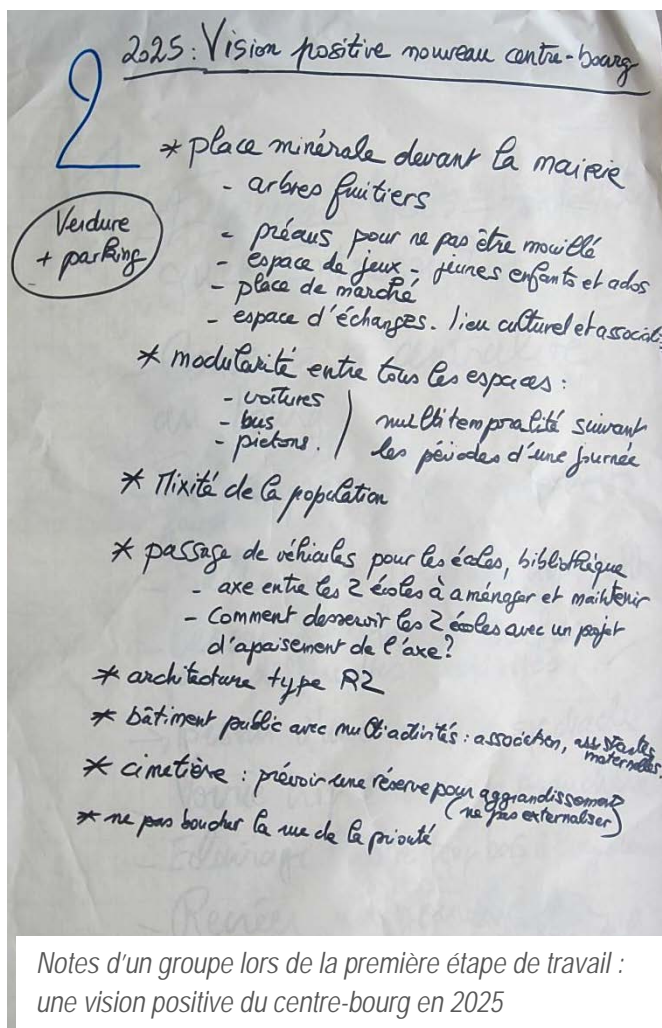 2025 : Vision positive nouveau centre-bourg
2
* place minérale devant la mairie
- arbres fruitiers
Verdure
+ parking
- préaus pour ne pas être mouillé
- espace de jeux - jeunes enfants et ados
- place de marché
- espace d'échanges. lieu culturel et associati
* modularité entre tous les espaces :
- voitures
- bus
- pietons.
multitemporalité suivant
les périodes d'une journée
* Mixité de la population
* passage de véhicules pour les écoles, bibliothèque
- axe entre les 2 écoles à aménager et maintenir
- Comment desservir les 2 écoles avec un projet
d'apaisement de l'axe ?
* architecture type R2
* bâtiment public avec multiactivités : association, assistantes
maternelles.
* cimetière : prévoir une réserve pour aggrandissement
(ne pas externaliser)
* ne pas boucher la rue de la
Notes d'un groupe lors de la première étape de travail :
une vision positive du centre-bourg en 2025